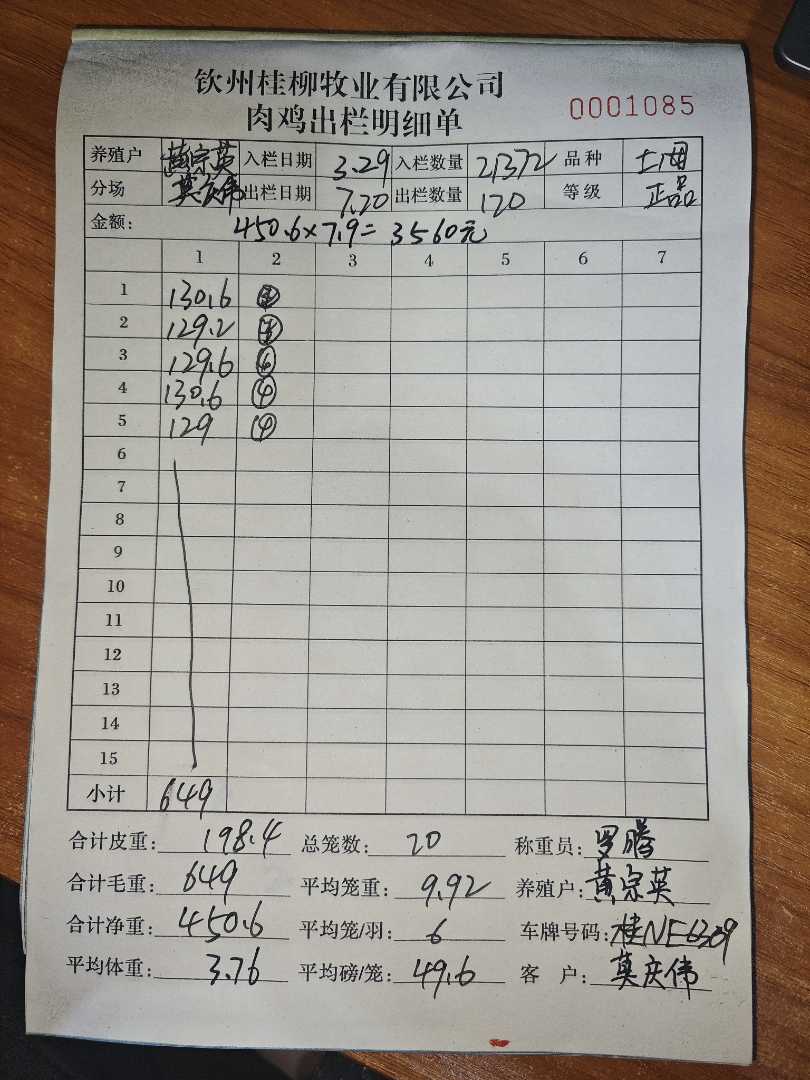 钦州桂柳牧业有限公司
肉鸡出栏明细单 0001085
养殖户 黄宗英 入栏日期 3.29 入栏数量 21372 品种
分场 莫庆伟 出栏日期 7.20 出栏数量 120 等级 正品
金额: 450.6×7.9=3560元
1 2 3 4 5 6 7
1 130.6
2 129.2
3 129.6
4 130.6 ④
5 129 ④
6
7
8
9
10
11
12
13
14
15
小计 649
合计皮重: 198.4 总笼数: 20 称重员: 罗腾
合计毛重: 649 平均笼重: 9.92 养殖户: 黄宗英
合计净重: 450.6 平均笼/羽: 6 车牌号码: 桂NE6309
平均体重: 3.76 平均磅/笼: 49.6 客 户: 莫庆伟